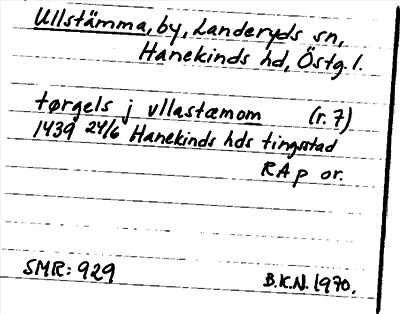 Ullstämma, by, Landeryds sn,
Hanekinds hd, Östg. l.
tørgels j vllastæmom (r. 7)
1439 24/6 Hanekinds hds tingsstad
RA p or.
SMR: 929 B.K.N. 1970.